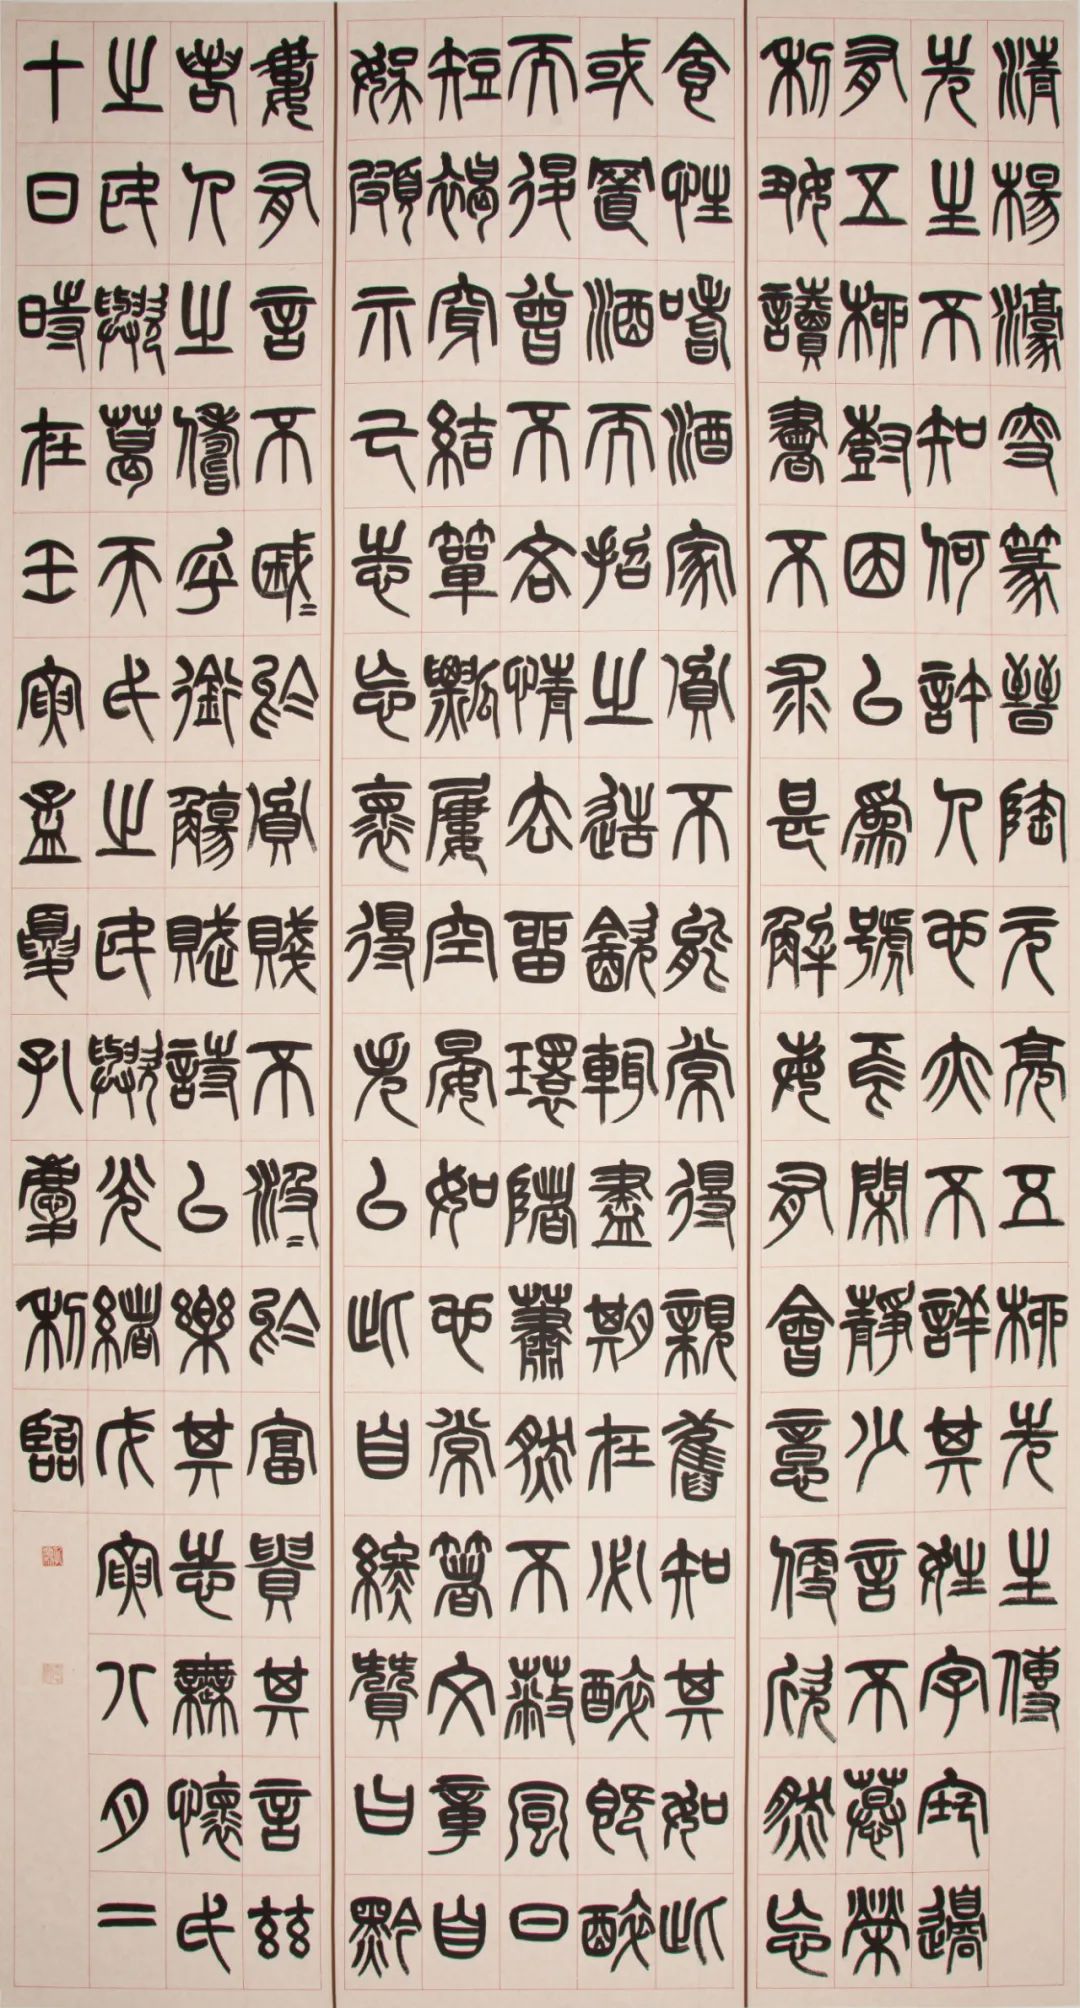 清楊濠叟篆晉陶元亮五柳先生傳
先生不知何許人也亦不詳其姓字宅邊
有五柳樹因以為號焉閑靜少言不慕榮
利好讀書不求甚解每有會意便欣然忘
食性嗜酒家貧不能常得親舊知其如此
或置酒而招之造飲輒盡期在必醉既醉
而退曾不吝情去留環堵蕭然不蔽風日
短褐穿結簞瓢屢空晏如也常著文章自
娛頗示己志忘懷得失以此自終贊曰黔
婁有言不戚〻於貧賤不汲〻於富貴其言茲
若人之儔乎銜觴賦詩以樂其志無懷氏
之民與葛天氏之民與光緒戊寅八月二
十日時在壬寅孟夏孔羣利臨